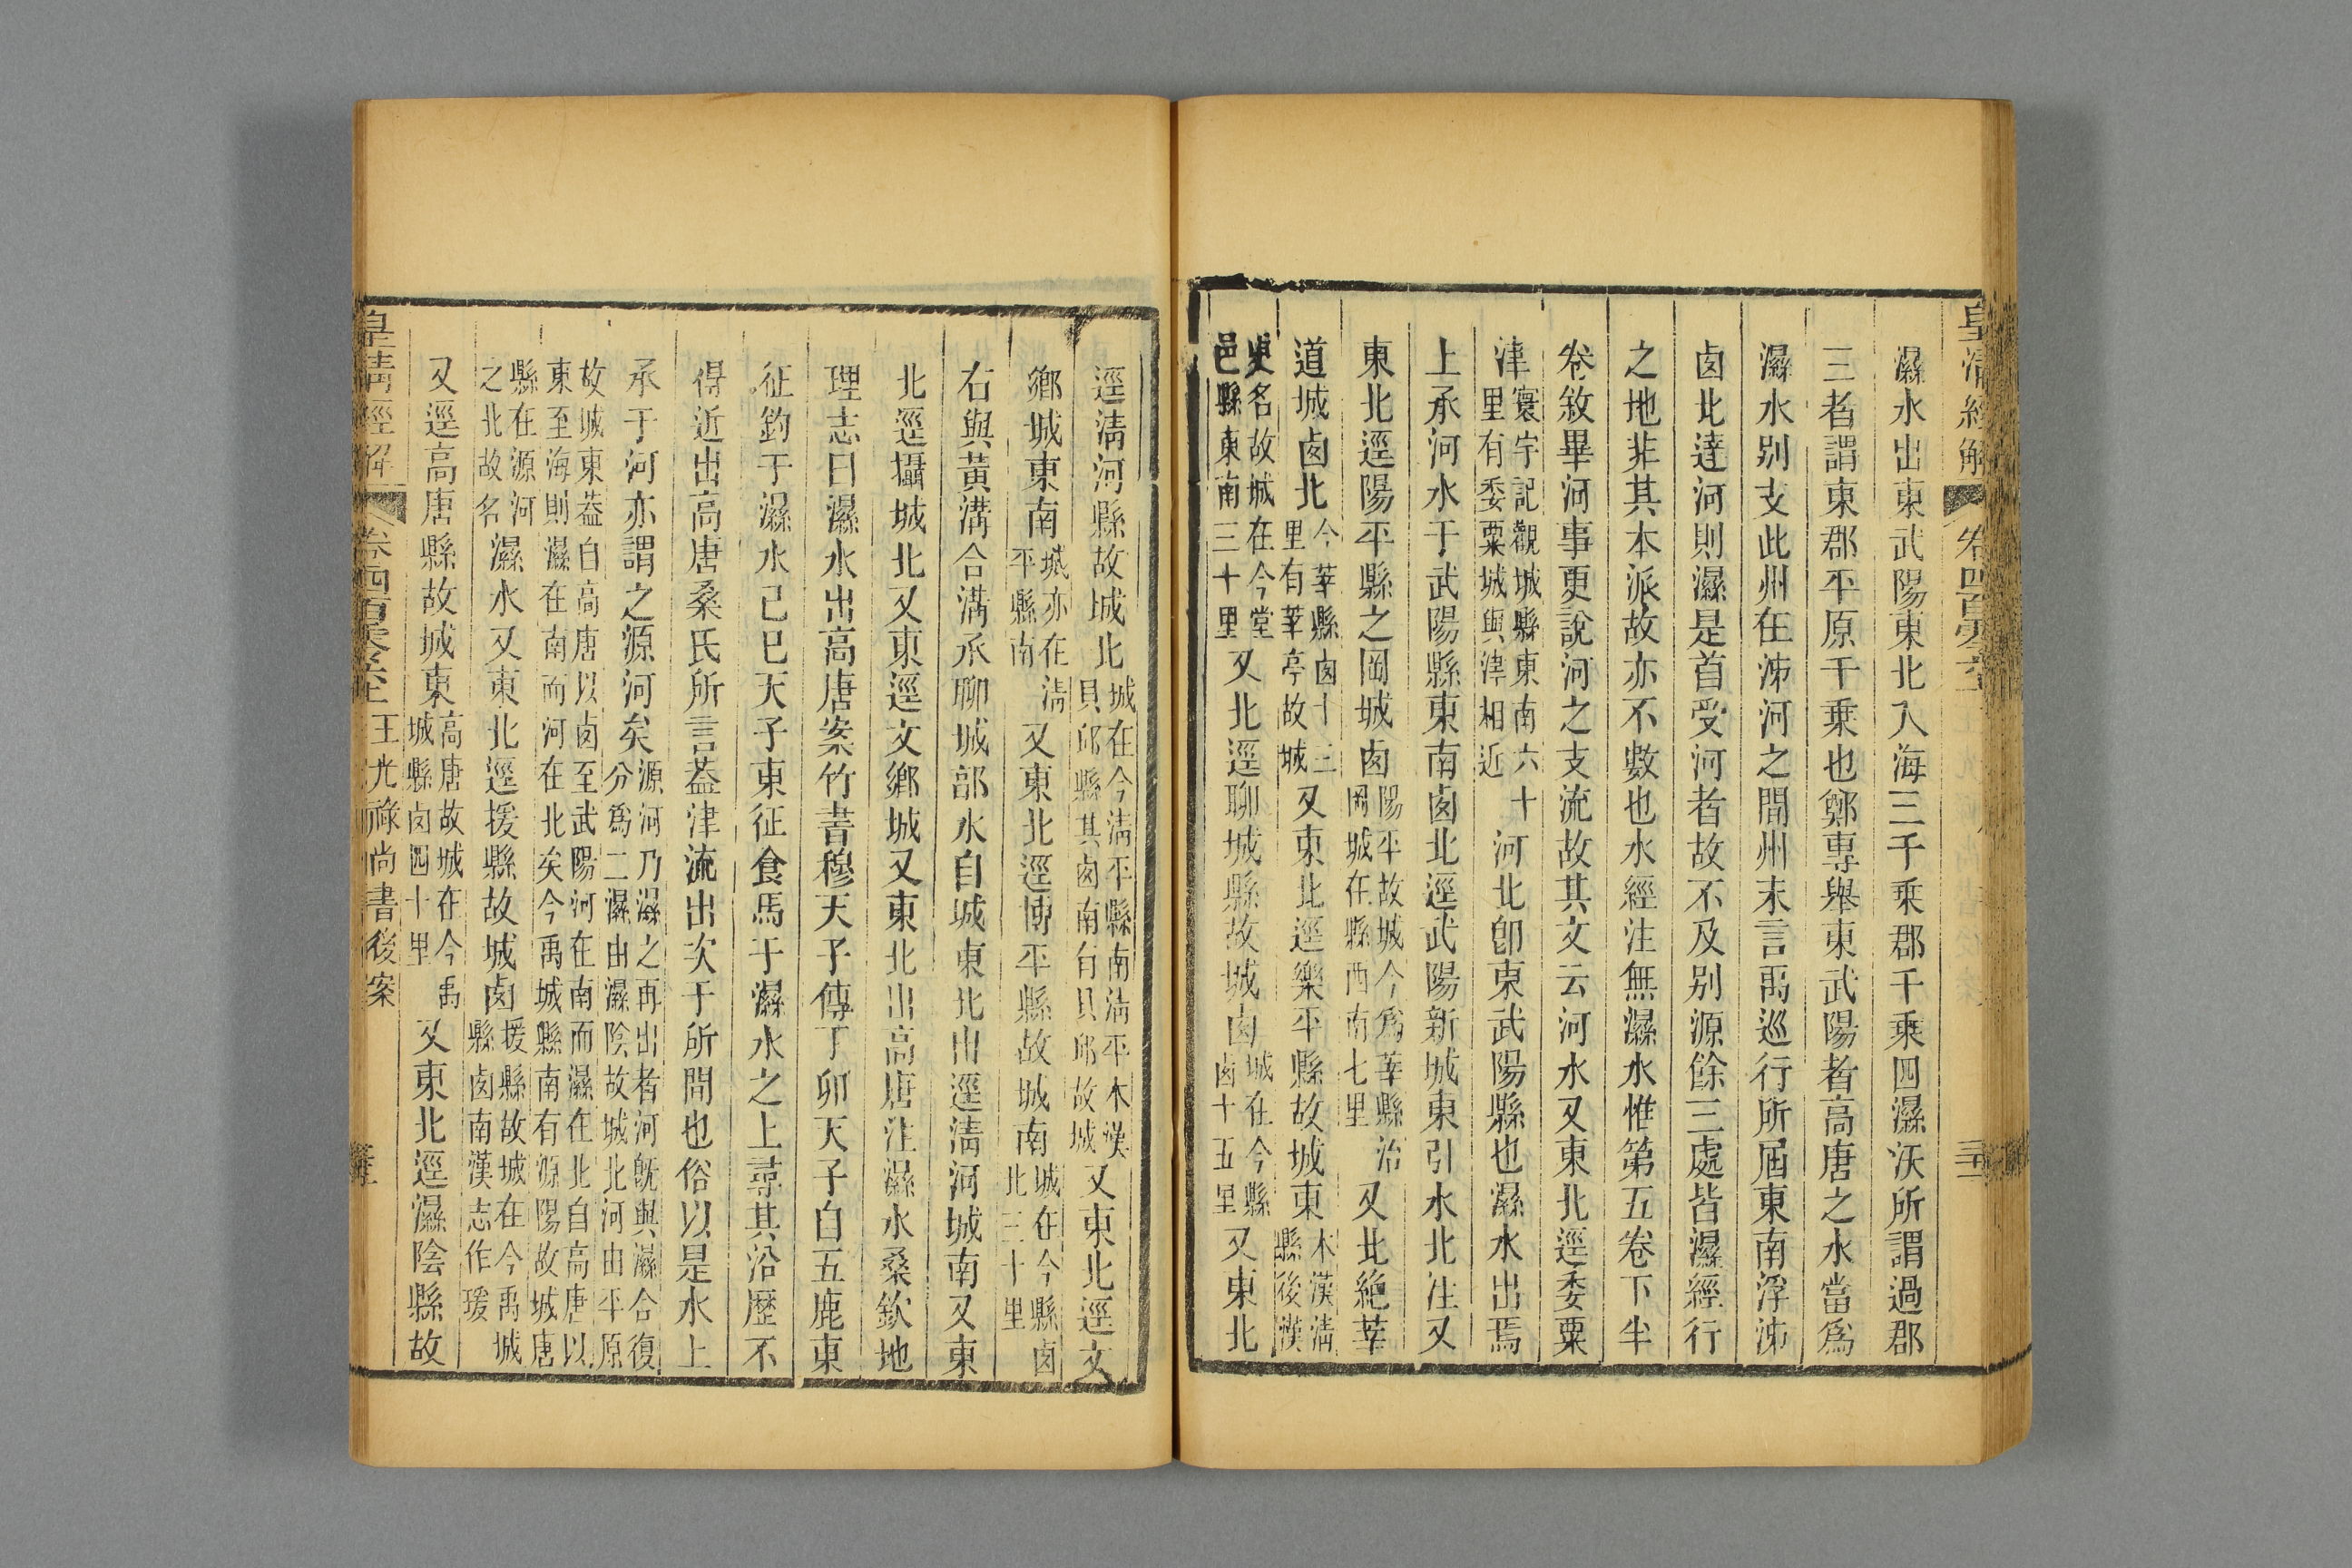 皇清經解 卷四百 三
漯水出東武陽東北入海三千乘郡千乘四漯沃所謂過郡
三者謂東郡平原千乘也鄭專舉東武陽者高唐之水當爲
漯水別支此州在泲河之間州末言禹巡行所屆東南浮泲
㢴北達河則漯是首受河者故不及別源餘三處皆漯經行
之地非其本派故亦不數也水經注無漯水惟第五卷下半
卷敘畢河事更說河之支流故其文云河水又東北逕委粟
津寰宇記觀城縣東南六十里有委粟城與津相近河北卽東武陽縣也漯水出焉
上承河水于武陽縣東南㢴北逕武陽新城東引水北注又
東北逕陽平縣之岡城㢴陽平故城今爲莘縣治岡城在縣西南七里又北絶莘
道城㢴北今莘縣㢴十三里有莘亭故城又東北逕樂平縣故城東本漢淸縣後漢
更名故城在今堂邑縣東南三十里又北逕聊城縣故城㢴城在今縣㢴十五里又東北
逕淸河縣故城北城在今淸平縣南淸平本漢貝邱縣其㢴南有貝邱故城又東北逕文
鄉城東南城亦在淸平縣南又東北逕博平縣故城南城在今縣㢴北三十里
右與黃溝合溝承聊城郭水自城東北出逕淸河城南又東
北逕攝城北又東逕文鄉城又東北出高唐注漯水桑欽地
理志曰漯水出高唐案竹書穆天子傳丁卯天子自五鹿東
征釣于漯水己巳天子東征食馬于漯水之上尋其沿歷不
得近出高唐桑氏所言葢津流出次于所間也俗以是水上
承于河亦謂之源河矣源河乃漯之再出者河旣與漯合復分爲二漯由漯陰故城北河由平原
故城東葢自高唐以㢴至武陽河在南而漯在北自高唐以東至海則漯在南而河在北矣今禹城縣南有源陽故城唐
縣在源河之北故名漯水又東北逕援縣故城㢴援縣故城在今禹城縣㢴南漢志作瑗
又逕高唐縣故城東高唐故城在今禹城縣㢴四十里又東北逕漯陰縣故
皇淸經解 卷四百 王光祿尚書後案